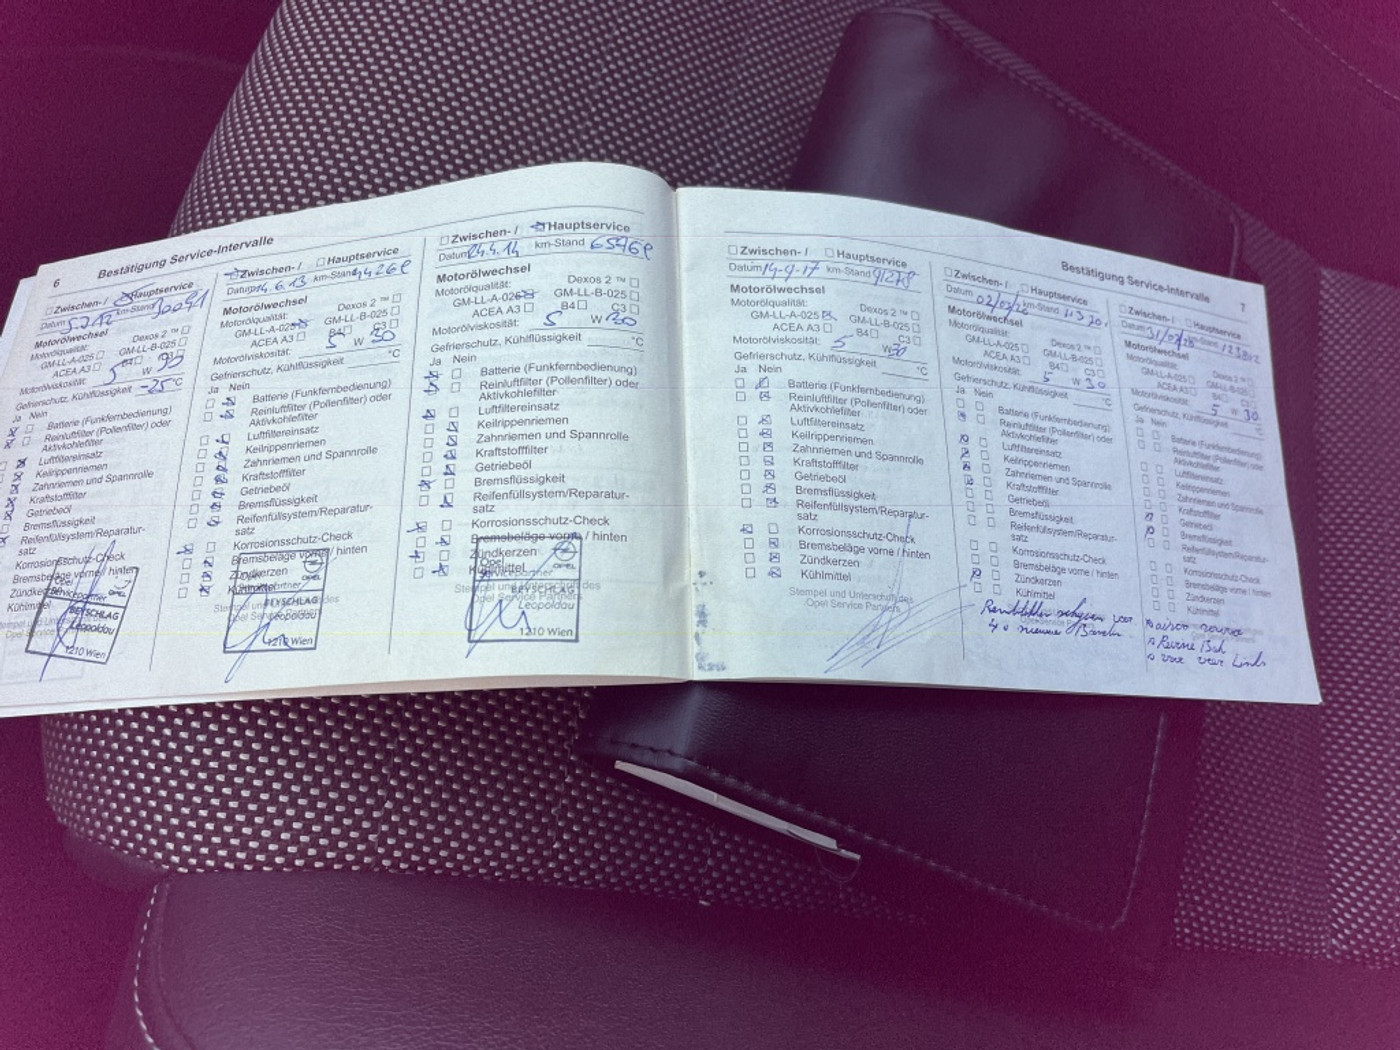 6
Bestätigung Service-Intervalle
Zwischen- / Hauptservice
Datum km-Stand
Motorölwechsel
Motorölqualität: Dexos 2 ™
GM-LL-A-025 GM-LL-B-025
ACEA A3 B4
Motorölviskosität: 5 W
Gefrierschutz, Kühlflüssigkeit -25 °C
Ja Nein
Batterie (Funkfernbedienung)
Reinluftfilter (Pollenfilter) oder
Aktivkohlefilter
Luftfiltereinsatz
Keilrippenriemen
Zahnriemen und Spannrolle
Kraftstofffilter
Getriebeöl
Bremsflüssigkeit
Reifenfüllsystem/Reparatur-
satz
Korrosionsschutz-Check
Bremsbeläge vorne / hinten
Zündkerzen
Kühlmittel
Opel
Servicepartner
BEYSCHLAG
Leopoldau
1210 Wien
Zwischen- / Hauptservice
Datum 14.6.13 km-Stand
Motorölwechsel
Motorölqualität: Dexos 2 ™
GM-LL-A-025 GM-LL-B-025
ACEA A3 B4 C3
Motorölviskosität: 5 W 30
Gefrierschutz, Kühlflüssigkeit °C
Ja Nein
Batterie (Funkfernbedienung)
Reinluftfilter (Pollenfilter) oder
Aktivkohlefilter
Luftfiltereinsatz
Keilrippenriemen
Zahnriemen und Spannrolle
Kraftstofffilter
Getriebeöl
Bremsflüssigkeit
Reifenfüllsystem/Reparatur-
satz
Korrosionsschutz-Check
Bremsbeläge vorne / hinten
Zündkerzen
Kühlmittel
Opel
OPEL
Servicepartner
BEYSCHLAG
Leopoldau
1210 Wien
Zwischen- / Hauptservice
Datum 24.4.14 km-Stand
Motorölwechsel
Motorölqualität: Dexos 2 ™
GM-LL-A-025 GM-LL-B-025
ACEA A3 B4 C3
Motorölviskosität: 5 W 30
Gefrierschutz, Kühlflüssigkeit °C
Ja Nein
Batterie (Funkfernbedienung)
Reinluftfilter (Pollenfilter) oder
Aktivkohlefilter
Luftfiltereinsatz
Keilrippenriemen
Zahnriemen und Spannrolle
Kraftstofffilter
Getriebeöl
Bremsflüssigkeit
Reifenfüllsystem/Reparatur-
satz
Korrosionsschutz-Check
Bremsbeläge vorne / hinten
Zündkerzen
Kühlmittel
Stempel und Unterschrift des
Opel Service Partners
Opel
OPEL
Servicepartner
BEYSCHLAG
Leopoldau
1210 Wien
Zwischen- / Hauptservice
Datum 14-9-17 km-Stand 91278
Motorölwechsel
Motorölqualität: Dexos 2 ™
GM-LL-A-025 GM-LL-B-025
ACEA A3 B4 C3
Motorölviskosität: 5 W 30
Gefrierschutz, Kühlflüssigkeit °C
Ja Nein
Batterie (Funkfernbedienung)
Reinluftfilter (Pollenfilter) oder
Aktivkohlefilter
Luftfiltereinsatz
Keilrippenriemen
Zahnriemen und Spannrolle
Kraftstofffilter
Getriebeöl
Bremsflüssigkeit
Reifenfüllsystem/Reparatur-
satz
Korrosionsschutz-Check
Bremsbeläge vorne / hinten
Zündkerzen
Kühlmittel
Stempel und Unterschrift des
Opel Service Partners
Bestätigung Service-Intervalle
7
Zwischen- / Hauptservice
Datum km-Stand
Motorölwechsel
Motorölqualität: Dexos 2 ™
GM-LL-A-025 GM-LL-B-025
ACEA A3 B4 C3
Motorölviskosität: 5 W 30
Gefrierschutz, Kühlflüssigkeit °C
Ja Nein
Batterie (Funkfernbedienung)
Reinluftfilter (Pollenfilter) oder
Aktivkohlefilter
Luftfiltereinsatz
Keilrippenriemen
Zahnriemen und Spannrolle
Kraftstofffilter
Getriebeöl
Bremsflüssigkeit
Reifenfüllsystem/Reparatur-
satz
Korrosionsschutz-Check
Bremsbeläge vorne / hinten
Zündkerzen
Kühlmittel
Zwischen- / Hauptservice
Datum km-Stand
Motorölwechsel
Motorölqualität: Dexos 2 ™
GM-LL-A-025 GM-LL-B-025
ACEA A3 B4 C3
Motorölviskosität: 5 W 30
Gefrierschutz, Kühlflüssigkeit °C
Ja Nein
Batterie (Funkfernbedienung)
Reinluftfilter (Pollenfilter) oder
Aktivkohlefilter
Luftfiltereinsatz
Keilrippenriemen
Zahnriemen und Spannrolle
Kraftstofffilter
Getriebeöl
Bremsflüssigkeit
Reifenfüllsystem/Reparatur-
satz
Korrosionsschutz-Check
Bremsbeläge vorne / hinten
Zündkerzen
Kühlmittel